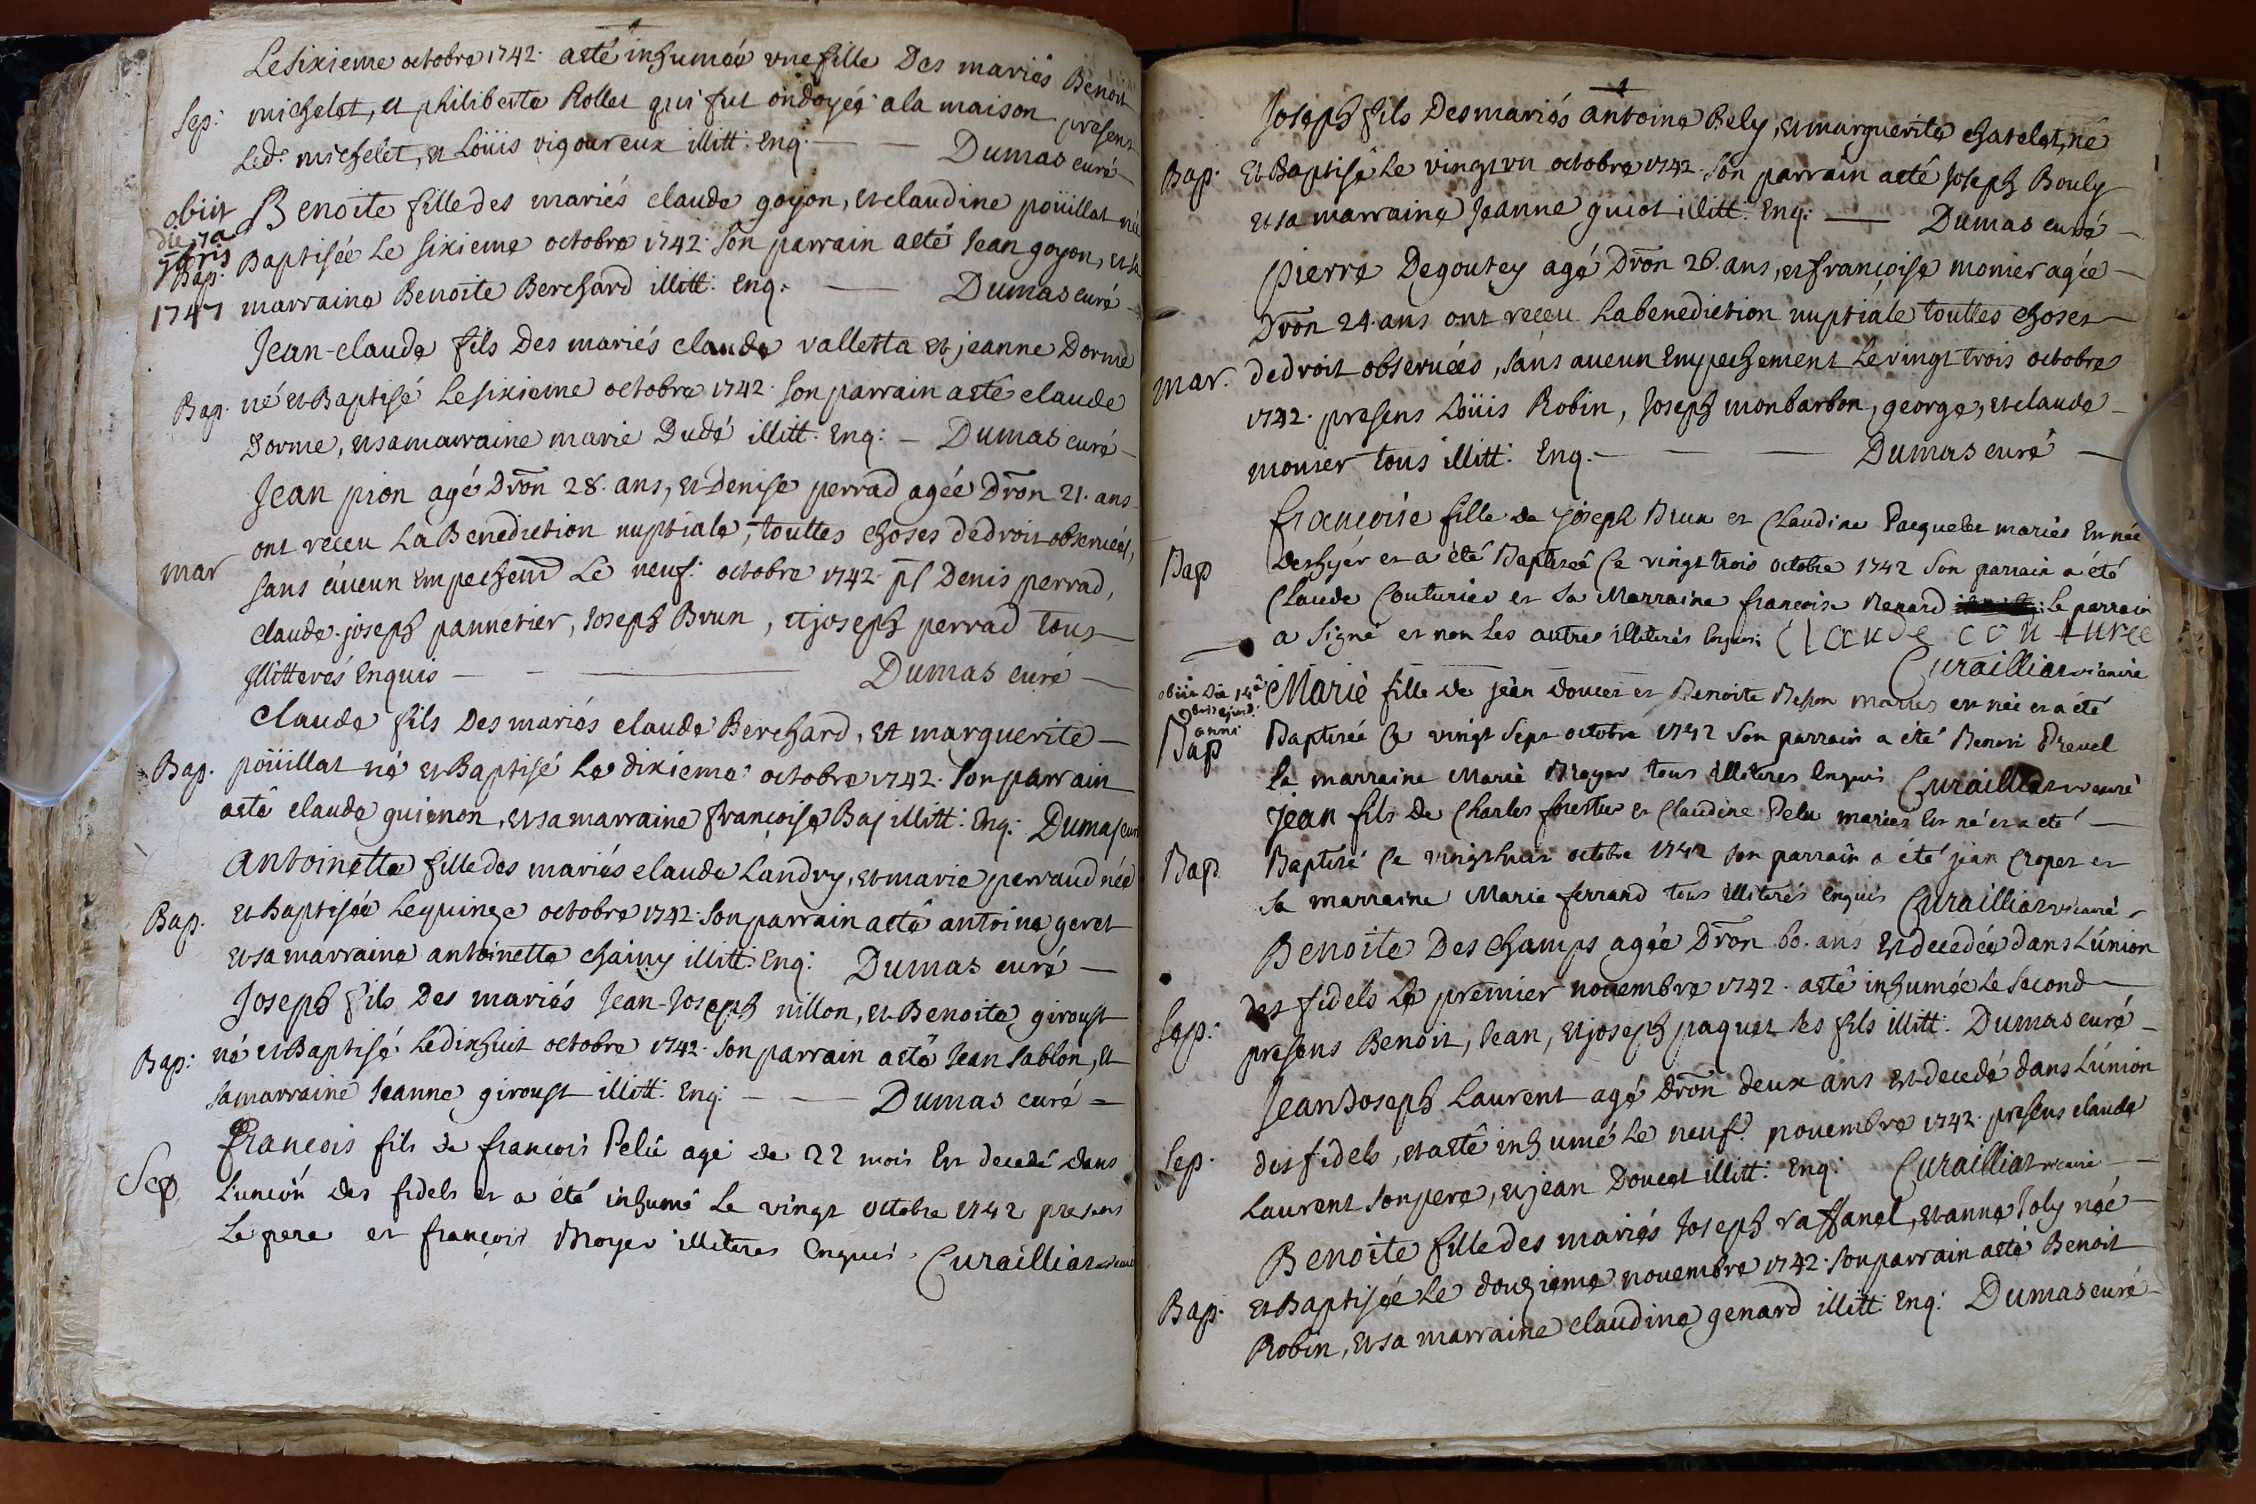 Le sixieme octobre 1742. a esté inhumée une fille des mariés Benoit
Sep: michelet, et philiberte Rollet qui fut ondoyée a la maison present
led. michelet, et Loüis vigoureux illitt: Enq. — — Dumas curé —
obiit
die 7a
9bris
1747
Benoite fille des mariés claude goyon, et claudine poüillat née
Bap. Baptisée le sixieme octobre 1742. son parrain a esté Jean goyon, et sa
marraine Benoite Berchard illitt: Enq. — Dumas curé —
Jean-claude fils des mariés claude valletta et jeanne Dorme
Bap. né et Baptisé le sixieme octobre 1742. son parrain a esté claude
Dorme, et sa marraine marie Dudé illitt: Enq: — Dumas curé —
Jean pion agé dron 28. ans, et Denise perrad agée dron 21. ans
ont receu la Benediction nuptiale, touttes choses de droit observées,
mar sans aucun Empechemt Le neuf. octobre 1742. pst Denis perrad,
claude. joseph pannetier, Joseph Brun, et joseph perrad tous
illitterés Enquis — — Dumas curé —
Claude fils des mariés claude Berchard, et marguerite —
Bap. poüillat né et Baptisé le dixieme octobre 1742. son parrain
a esté claude guienon, et sa marraine françoise Bas illitt: Enq: Dumas curé
Antoinette fille des mariés claude Landry, et marie perraud née
Bap. et Baptisée le quinze octobre 1742. son parrain a esté antoine geret
et sa marraine antoinette chainy illitt: Enq: Dumas curé —
Joseph fils des mariés Jean-Joseph nillon, et Benoite giroust
Bap: né et Baptisé le dixhuit octobre 1742. son parrain a esté Jean sablon, et
sa marraine Jeanne giroust illitt: Enq: — — Dumas curé =
françois fils de françois Pelu agé de 22 mois Est decedé dans
Sep. L'union des fidels et a été inhumé Le vingt octobre 1742 presens
Le pere et françois Moyer illiteres Enquis. Curailliat vicaire
Joseph fils des mariés antoine Bely, et marguerite chatelet, né
Bap. et Baptisé le vingt un octobre 1742. son parrain a esté Joseph Bouly
et sa marraine Jeanne guiot illitt: Enq: — Dumas curé —
Pierre Degoutey agé dron 26. ans, et françoise monier agée —
Dron 24. ans ont receu la benediction nuptiale touttes choses —
mar. de droit observées, sans aucun Empechement le vingt trois octobre
1742. presens Loüis Robin, Joseph monbarbon, george, et claude —
monier tous illitt: Enq. — — Dumas curé —
françoise fille de Joseph Brun et Claudine Pacquelet mariés Est née
Bap des hyér et a été Baptiseé Ce vingt trois octobre 1742 Son parrain a été
Claude Couturier et sa Marraine françoise Renard Le parrain
a Signé et non Les autres illiterés Enquis claude couturee
Curailliat vicaire
Marie fille de jean doucet et Benoite Besson mariés est née et a été
Bap Baptisée Ce vingt Sept octobre 1742 Son parrain a été Benoit Prevel
la marraine Marie Moyer tous illiteres Enquis Curailliat vicaire
Jean fils de Charles forestier et Claudine Pelu mariés Est né et a été —
Bap Baptisé Ce vingt huit octobre 1742 son parrain a été jean Cropet et
sa marraine Marie ferrand tous illiterés Enquis Curailliat vicaire
Benoite Deschamps agée dron 60. ans Est decedée dans L'union
des fidels le premier novembre 1742. a esté inhumée le second —
Sep: presens Benoit, Jean, et joseph paquet ses fils illitt: Dumas curé —
Jean Joseph Laurent agé dron deux ans Est decedé dans L'union
Sep. des fidels, et a esté inhumé Le neuf. novembre 1742. presens claude
Laurent son pere, et jean Doucet illitt: Enq: Curailliat vicaire —
Benoite fille des mariés Joseph raffanel, et anne Joly née —
Bap. et Baptisée le douzieme novembre 1742. son parrain a esté Benoit
Robin, et sa marraine claudine genard illitt: Enq: Dumas curé —